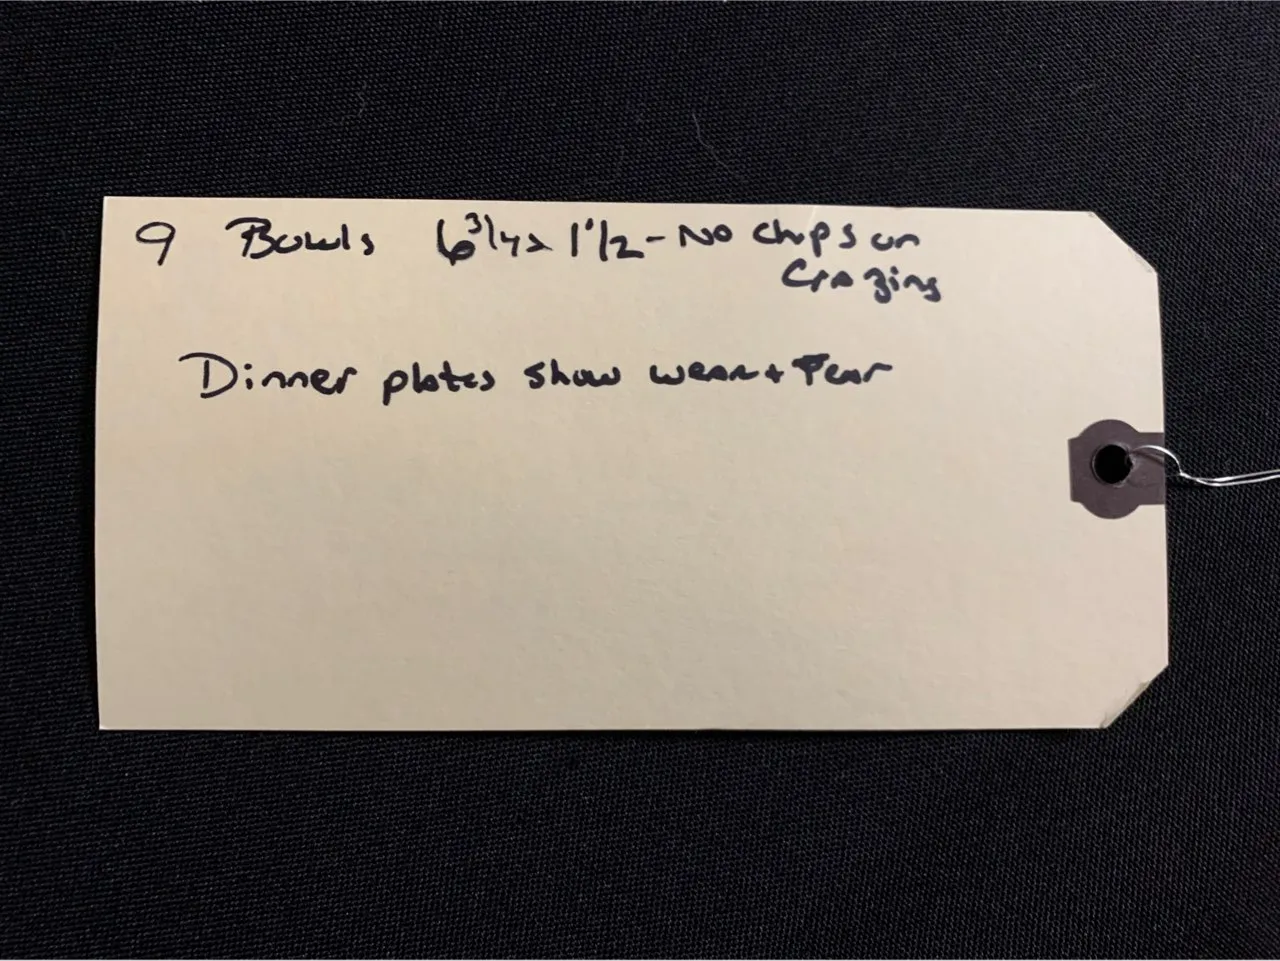 9 Bowls 6 3/4 x 1 1/2 - No chips or
Crazing
Dinner plates show wear + Tear